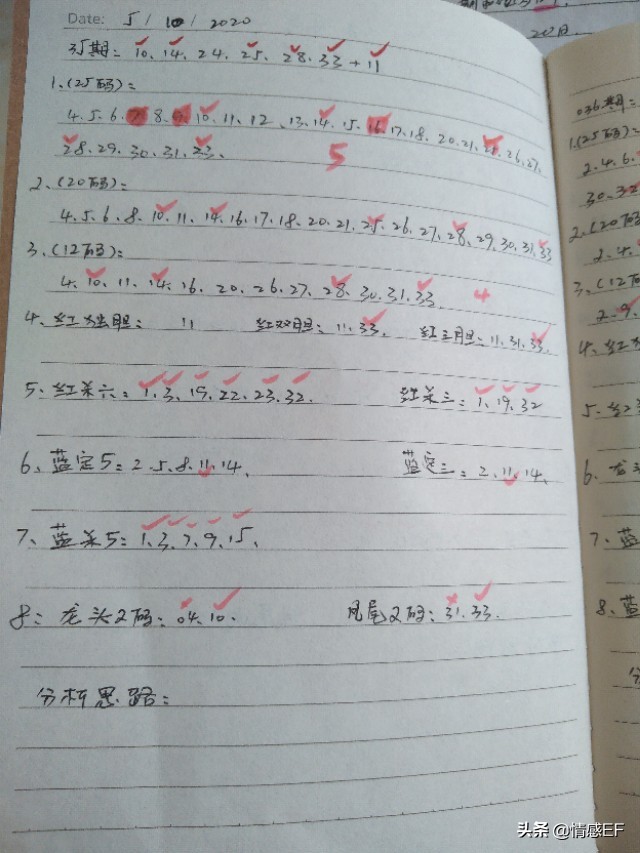 Date: 5 / 10 / 2020
35期: 10、14、24、25、28、33 + 11
1、(25码):
4、5、6、7、8、9、10、11、12、13、14、15、16、17、18、20、21、25、26、27、
28、29、30、31、33、 5
2、(20码):
4、5、6、8、10、11、14、16、17、18、20、21、25、26、27、28、29、30、31、33
3、(12码):
4、10、11、14、16、20、26、27、28、30、31、33、 4
4、红独胆: 11 红双胆: 11、33、 红三胆: 11、31、33、
5、红杀六: 1、3、19、22、23、32、 红杀三: 1、19、32
6、蓝定5: 2、5、8、11、14、 蓝定三: 2、11、14、
7、蓝杀5: 1、3、7、9、15、
8: 龙头2码: 04、10、 凤尾2码: 31、33、
分析思路:
036期:
1、(25码):
2、4、6、
30、32
2、(20码
2、4、
3、(12码
2、9、
4、红
5、红
6、
7、蓝
8、蓝
头条 @情感EF